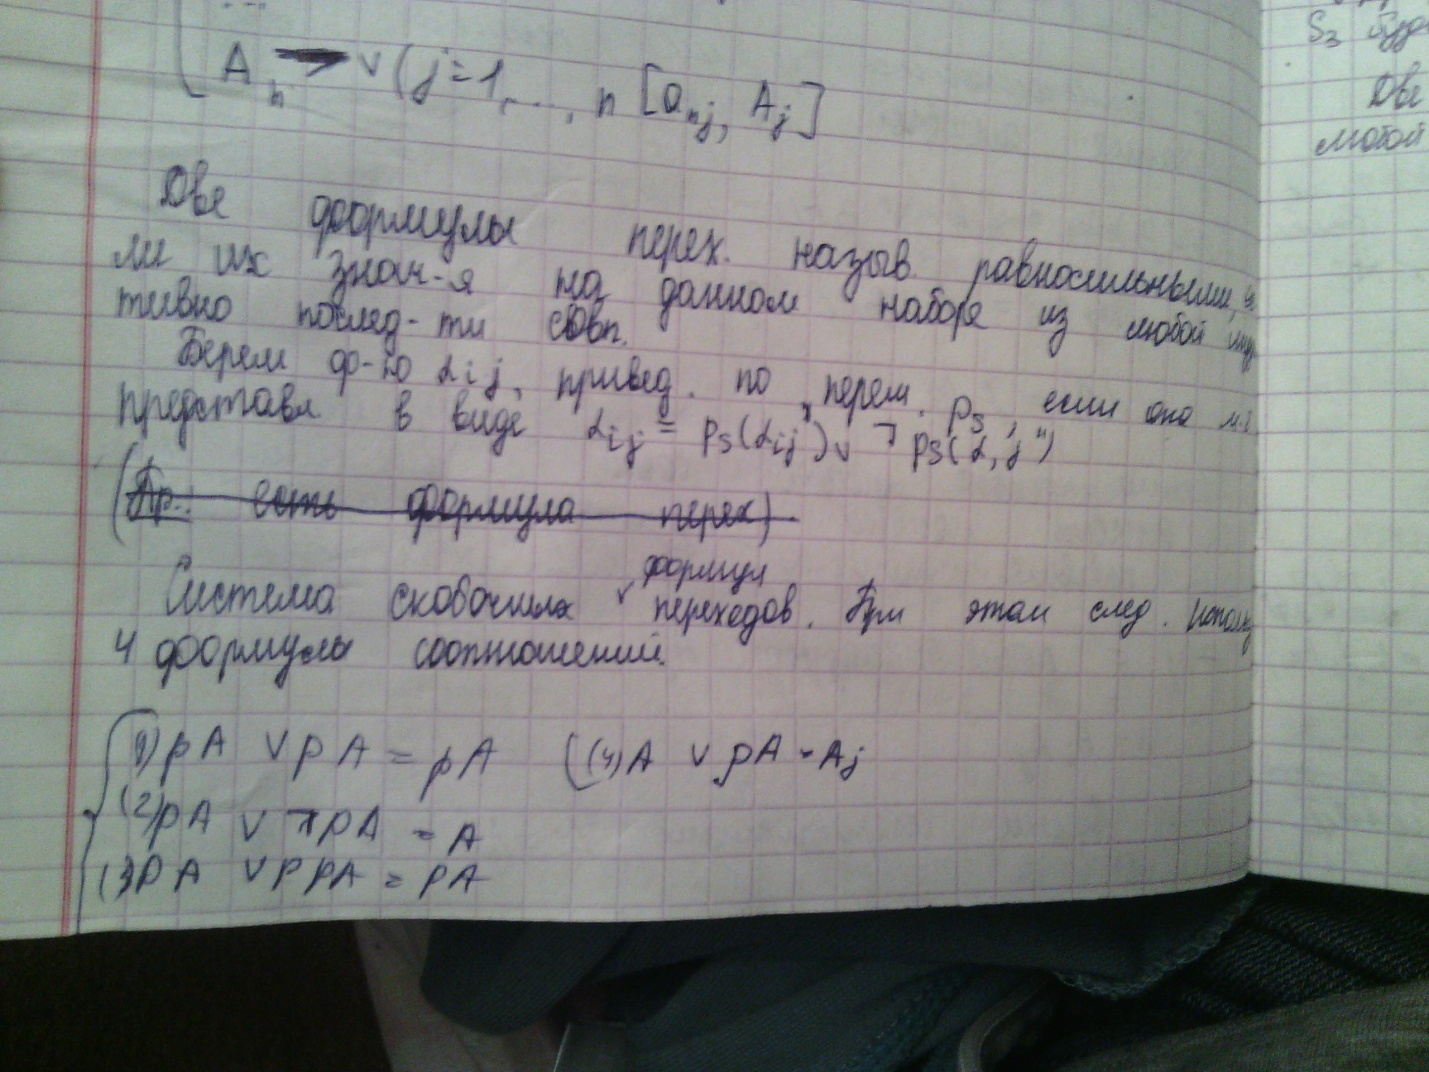 ...
A_n → ∨ (j=1, ..., n [a_nj, A_j]
Две формулы перех. назыв. равносильными,
ли их знач-я на данном наборе из любой
тивно послед-ти совп.
Берем ф-ю α_ij, привед. по перем. p_s, если она м.б
представл. в виде α_ij = p_s(α_ij') ∨ ¬ p_s(α_ij")
(Пр.: есть формула перех)
формул
Система скобочных ∨ переходов. При этом след. использ
4 формулы соотношений.
(1) pA ∨ pA = pA ((4) A ∨ pA = A;
(2) pA ∨ ¬pA = A
(3) pA ∨ ppA = pA
S_3 буд
Две
любой